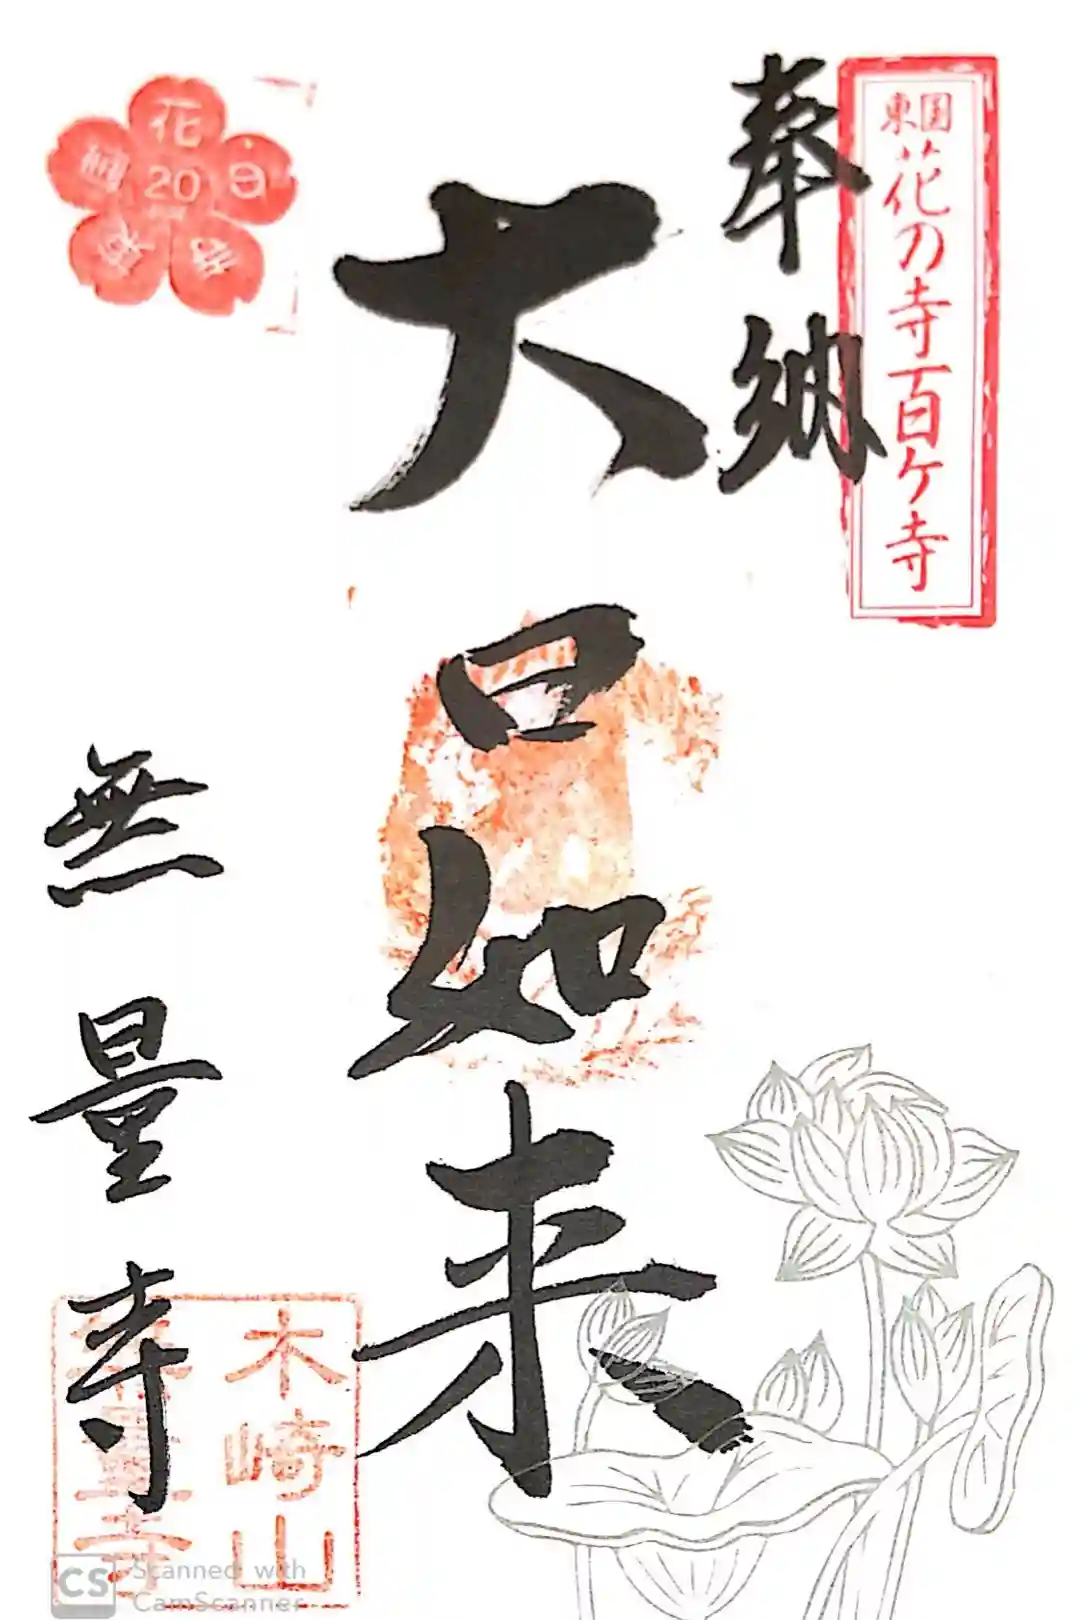 東国花の寺百ケ寺
奉納
大日如来
無量寺
木崎山
無量寺
花
20
日
Scanned with
CamScanner
CS